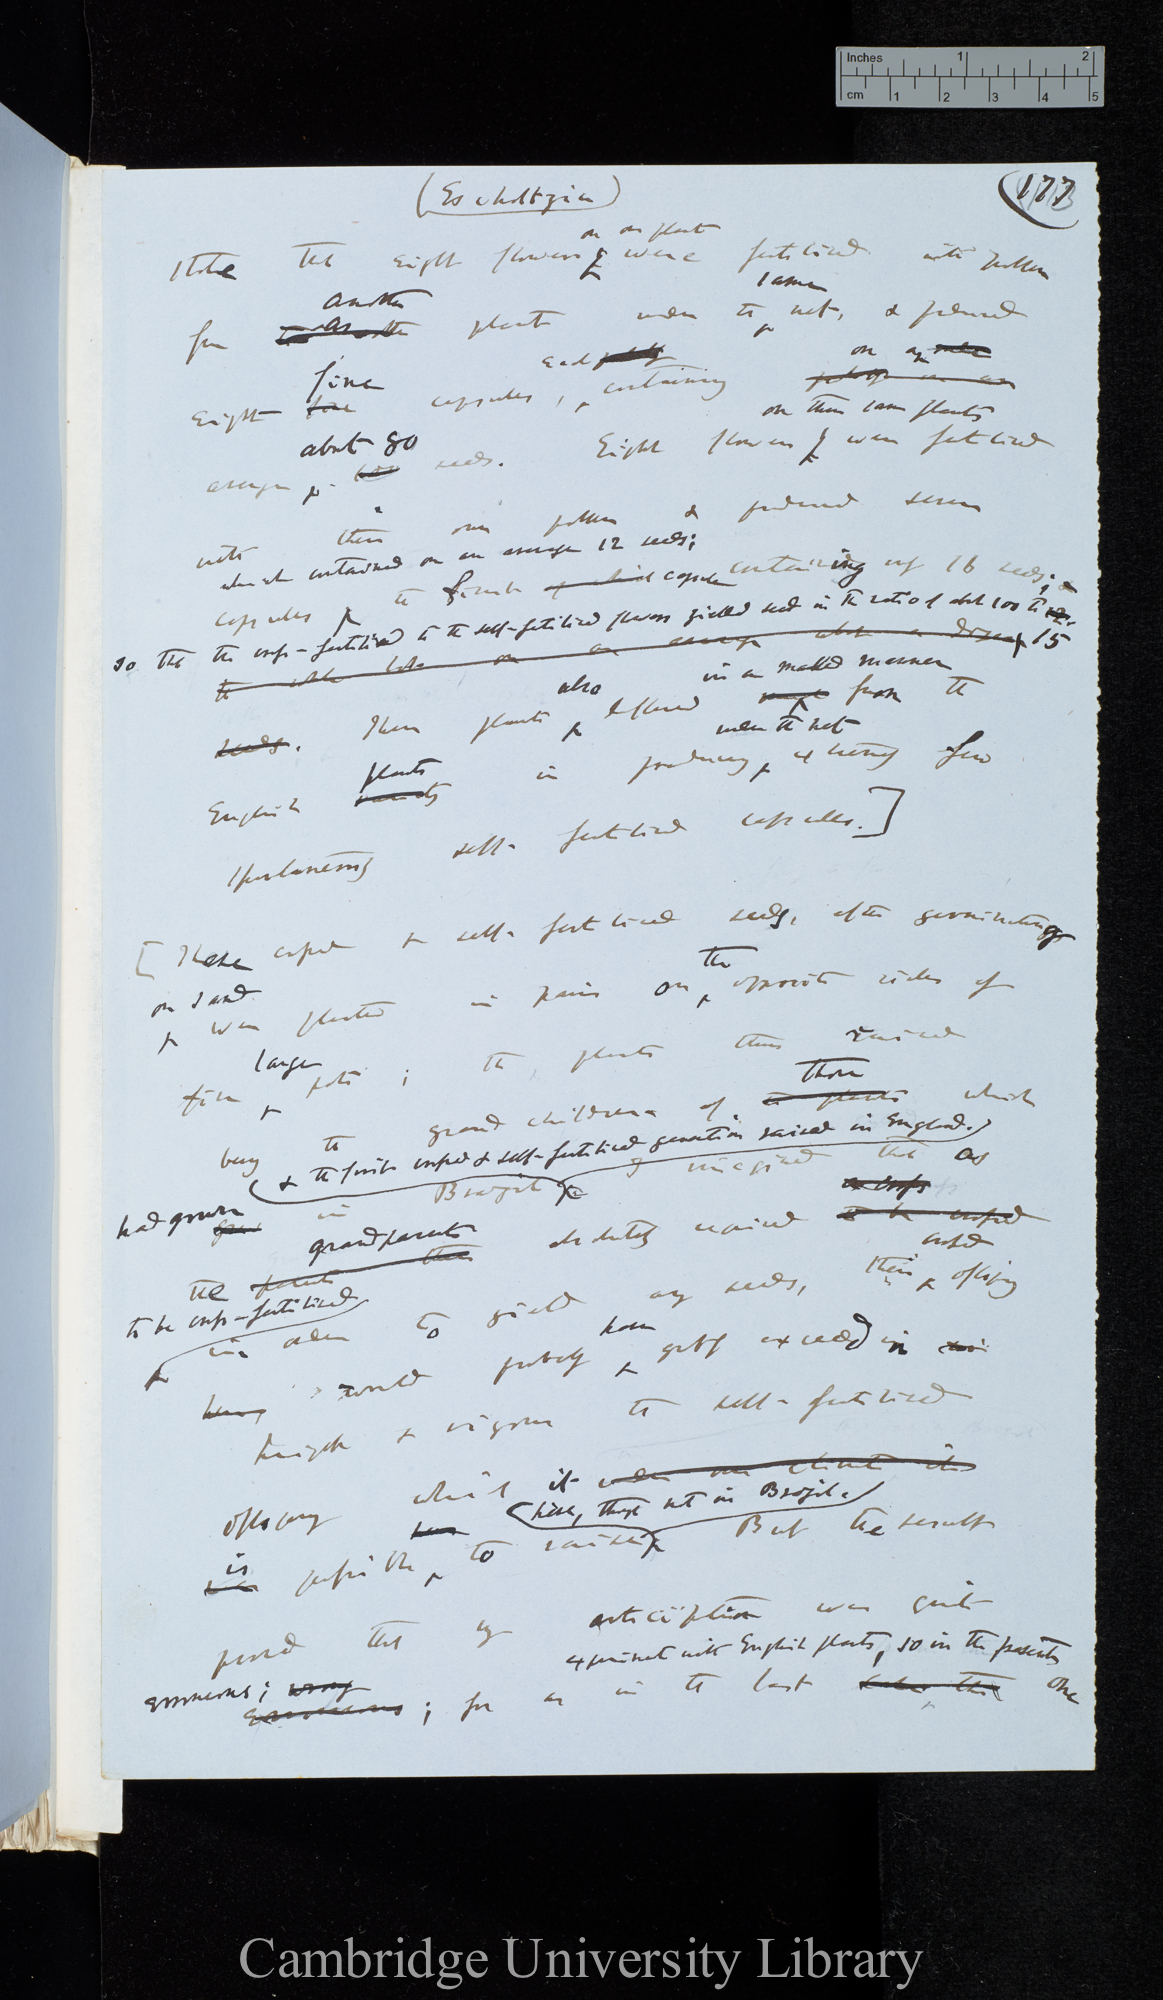 Inches 1 2
cm 1 2 3 4 5
(Escholtzia)
177
on one plant
State that eight flowers were fertilised with pollen
another same
from plant under the net, & produced
fine each on an
Eight capsules, containing
on these same plants
about 80
average seeds. Eight flowers were fertilised
with their own pollen & produced seven
which contained on an average 12 seeds;
capsules the finest capsule containing only 16 seeds;
so that the cross-fertilised to the self-fertilised flowers yielded seed in the ratio of about 100 to 15
also in a marked manner
seeds. These plants differed from the
under the net
plants
English in producing extremely few
spontaneously self-fertilised capsules.]
[These crossed & self-fertilised seeds, after germinating
on sand the
were planted in pairs on opposite sides of
large
five pots; the plants thus raised
those
being the grandchildren of which
& the first crossed & self-fertilised generation raised in England.
had grown in Brazil I imagined that as
grandparents
the absolutely required
to be cross-fertilised crossed
in order to yield any seeds, their offspring
have
would probably greatly exceed in
height & vigour the self-fertilised
offspring which it
here, though not in Brazil.
is possible to raise But the result
proved that my anticipation was quite
experiment with English plants, so in the present
erroneous; wrong
erroneous; for as in the last one
Cambridge University Library